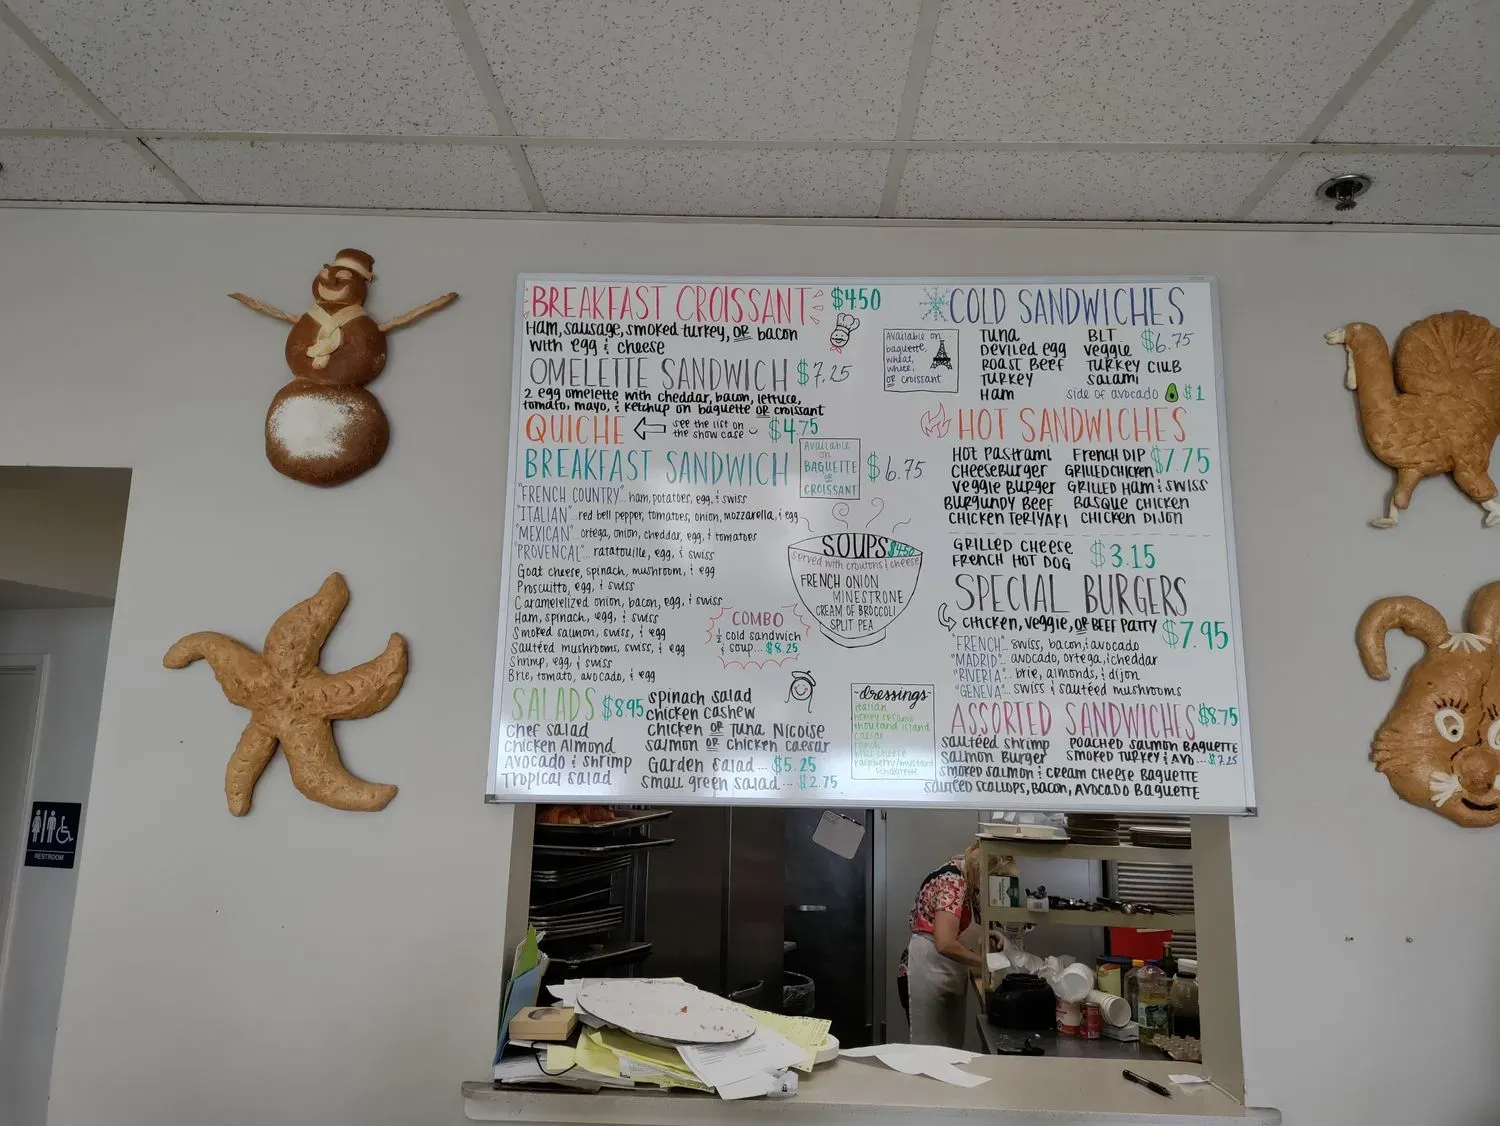 BREAKFAST CROISSANT $4.50
Ham, sausage, smoked turkey, OR bacon
with egg & cheese
OMELETTE SANDWICH $7.25
2 egg omelette with cheddar, bacon, lettuce,
tomato, mayo, & ketchup on baguette OR croissant
QUICHE see the list on $4.75
the show case
BREAKFAST SANDWICH $6.75
Available
on
BAGUETTE
OR
CROISSANT
"FRENCH COUNTRY"... ham, potatoes, egg, & swiss
"ITALIAN"...red bell pepper, tomatoes, onion, mozzarella, & egg
"MEXICAN"... ortega, onion, cheddar, egg, & tomatoes
"PROVENCAL"... ratatouille, egg, & swiss
Goat cheese, spinach, mushroom, & egg
Proscuitto, egg, & swiss
Caramelelized onion, bacon, egg, & swiss
Ham, spinach, egg, & swiss
Smoked salmon, swiss, & egg
Sautéed mushrooms, swiss, & egg
Shrimp, egg, & swiss
Brie, tomato, avocado, & egg
SOUPS $4.50
served with croutons & cheese
FRENCH ONION
MINESTRONE
CREAM OF BROCCOLI
SPLIT PEA
COMBO
1/2 cold sandwich
& soup... $8.25
SALADS $8.95
Chef salad
Chicken Almond
Avocado & shrimp
Tropical salad
spinach salad
chicken cashew
chicken OR Tuna Nicoise
salmon OR chicken caesar
Garden salad... $5.25
small green salad... $2.75
dressings
italian
honey sesame
thousand island
caesar
ranch
bleu cheese
raspberry/mustard
vinaigrette
COLD SANDWICHES
Available on
baguette,
wheat,
white,
OR croissant
Tuna BLT $6.75
Deviled egg veggie
Roast Beef Turkey Club
Turkey salami
Ham side of avocado $1
HOT SANDWICHES
Hot Pastrami French Dip $7.75
Cheeseburger Grilled Chicken
Veggie Burger Grilled Ham & Swiss
Burgundy Beef Basque Chicken
Chicken Teriyaki Chicken Dijon
Grilled Cheese $3.15
French Hot Dog
SPECIAL BURGERS
Chicken, Veggie, OR Beef Patty $7.95
"FRENCH"... swiss, bacon, & avocado
"MADRID"... avocado, ortega, & cheddar
"RIVERIA"... brie, almonds, & dijon
"GENEVA"... swiss & sautéed mushrooms
ASSORTED SANDWICHES $8.75
sautéed shrimp Poached Salmon Baguette
Salmon Burger Smoked Turkey & Avo... $7.25
smoked salmon & cream cheese Baguette
sautéed scallops, Bacon, Avocado Baguette
RESTROOM